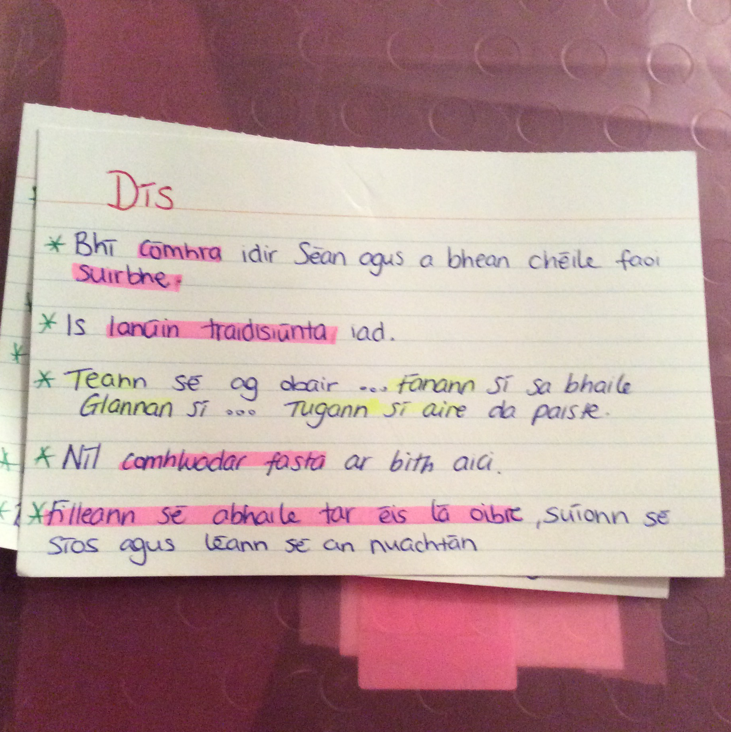 Dís
* Bhí cómhra idir Séan agus a bhean chéile faoi
suirbhe.
* Is lanúin traidisiúnta iad.
* Teann sé ag obair ... fanann sí sa bhaile
Glannan sí ... Tugann sí aire da paiste.
* Níl comhluadar fasta ar bith aici.
* Filleann sé abhaile tar éis lá oibre, suíonn sé
síos agus léann sé an nuachtán